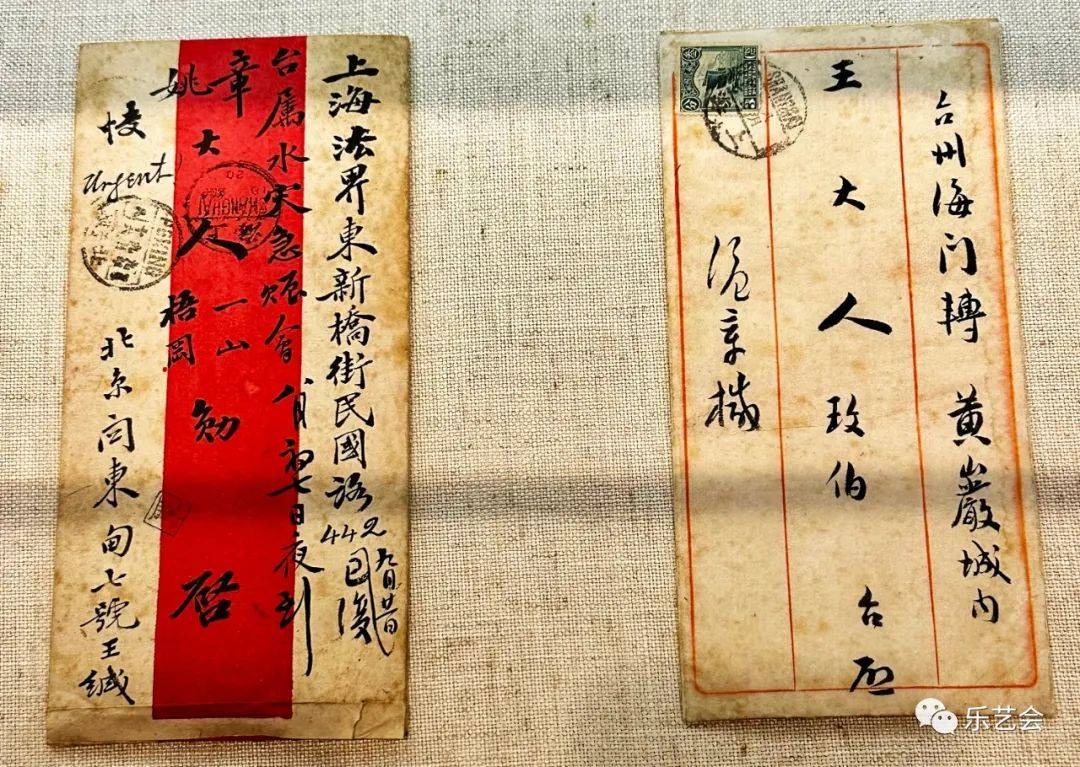 上海法界東新橋街民國路
44号
九月廿日
已復
台属水灾急赈會
八月初七日夜到
章一山
姚梧岡
大人勛啓
快
Urgent
北京向東甸七號王緘
台州海门轉 黄巖城内
王大人玫伯 台啟
滬章械
SHANGHAI
乐艺会